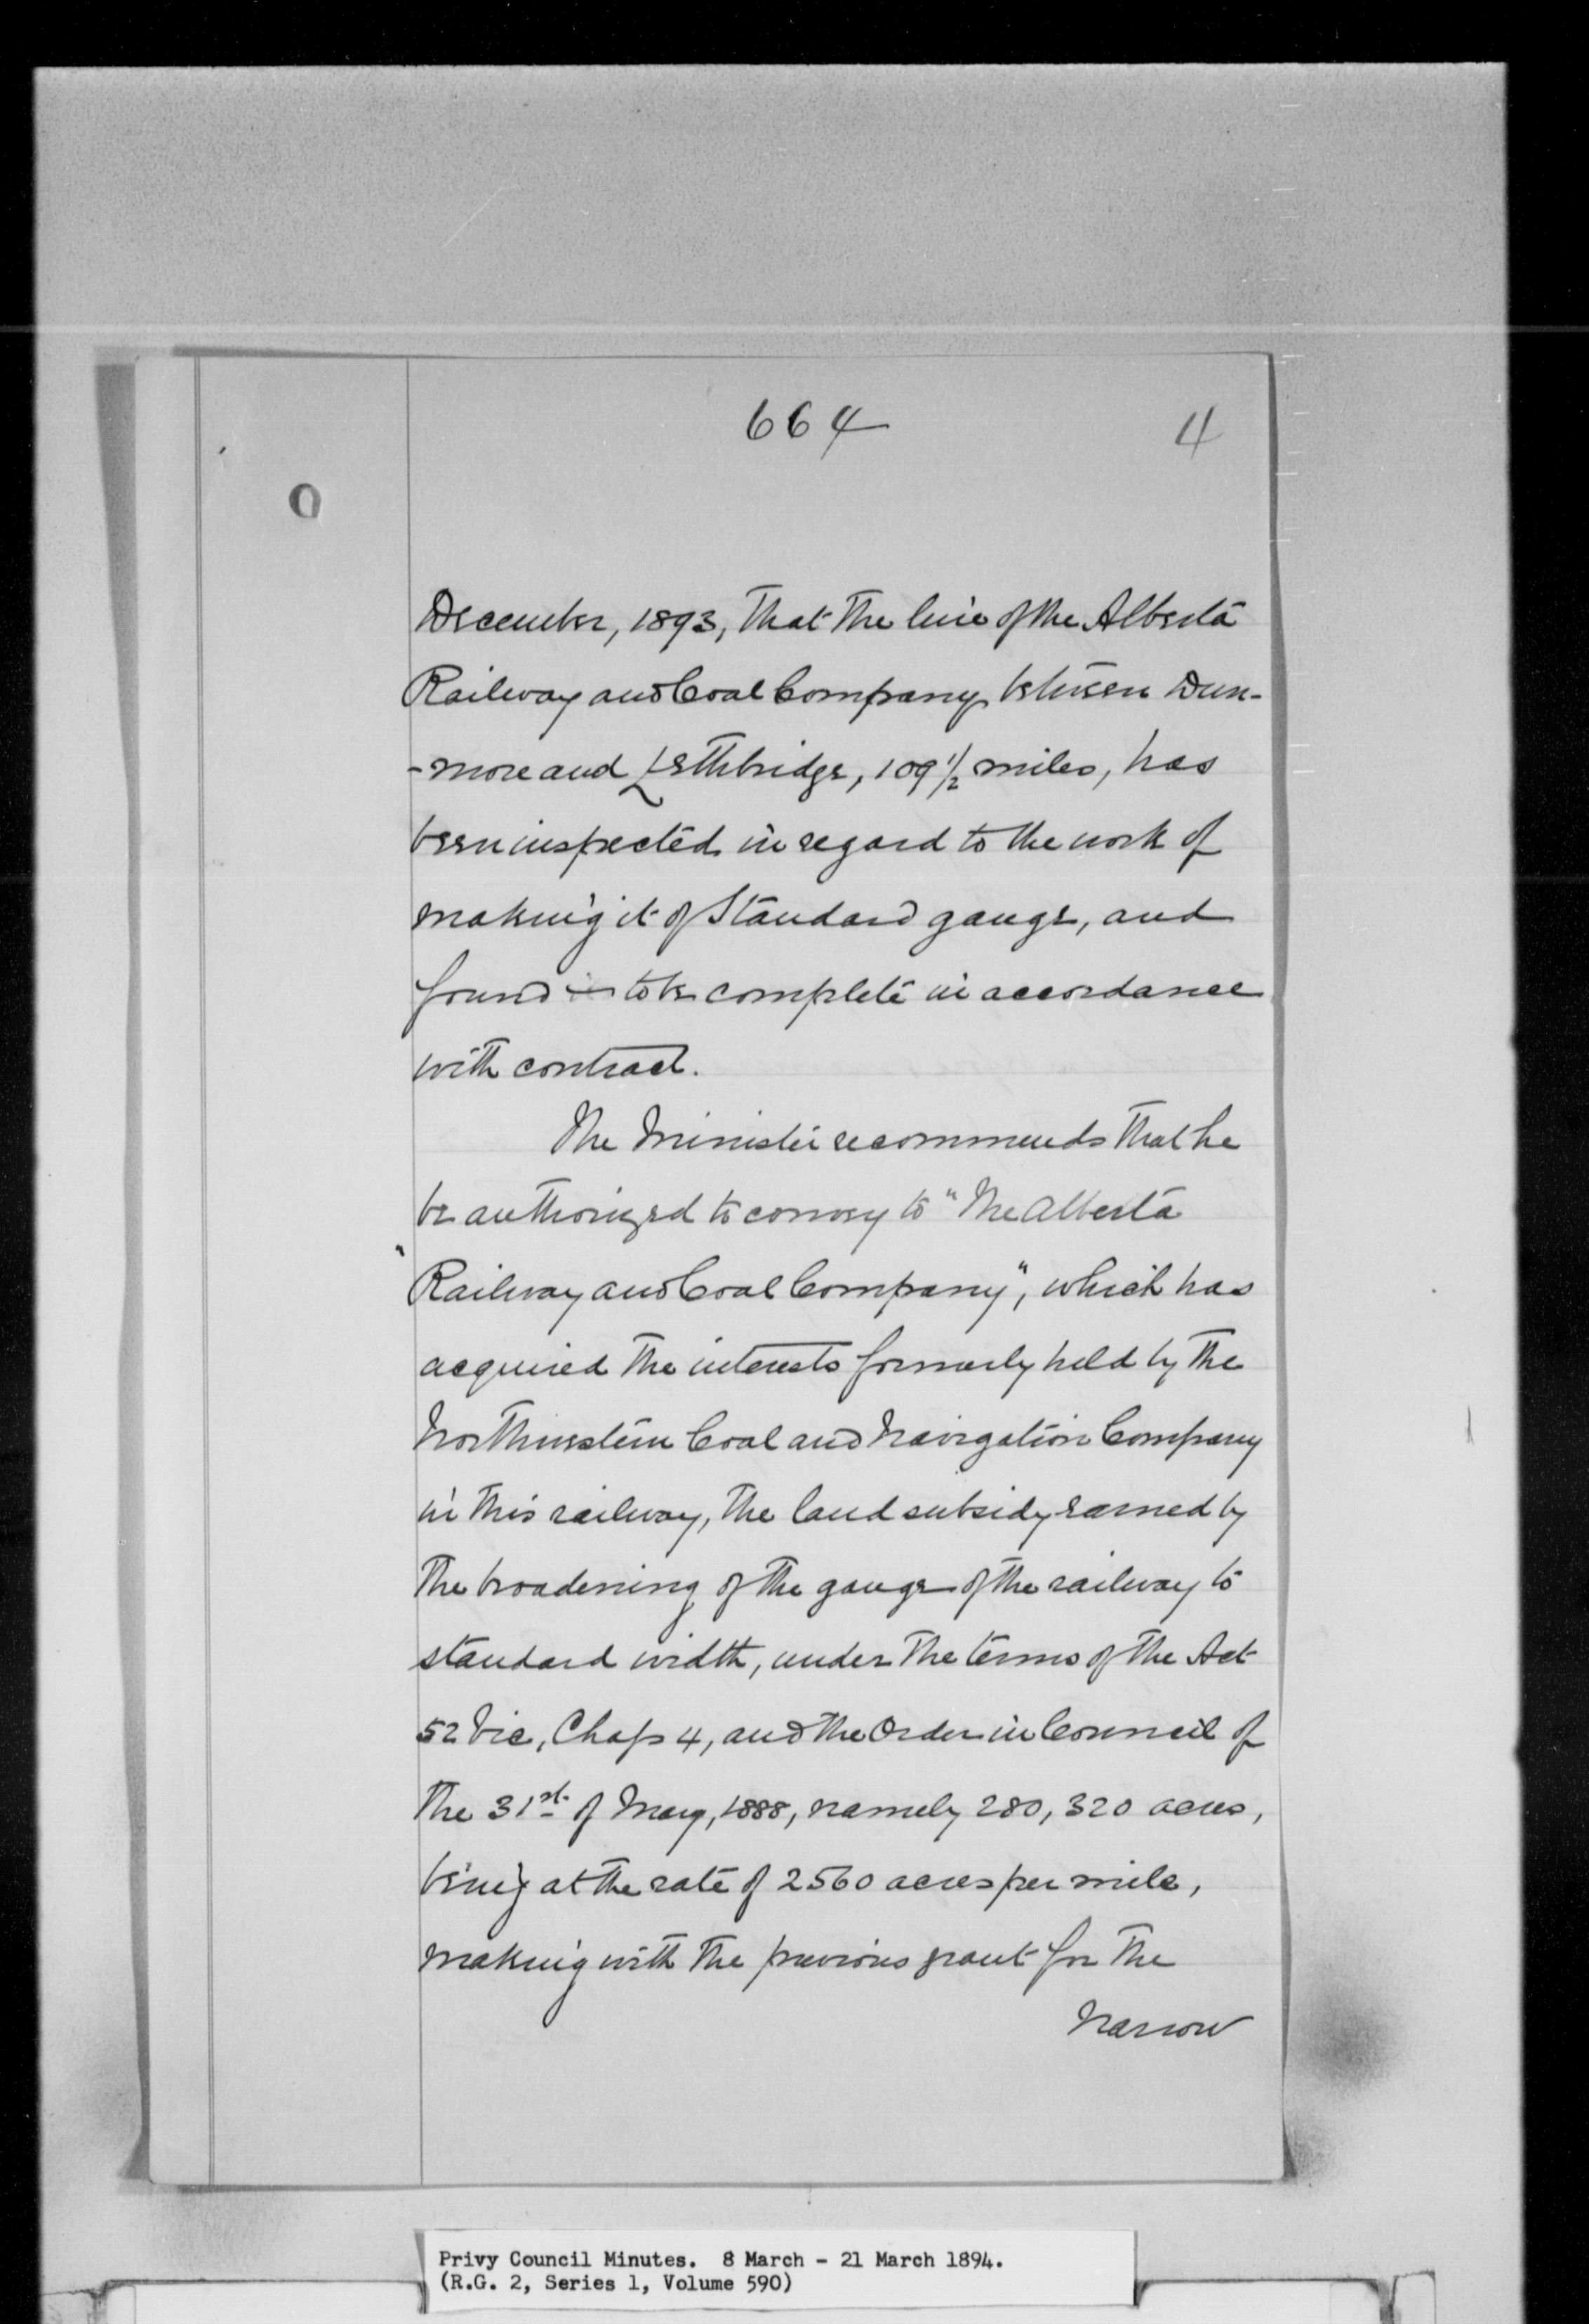 664
4
December, 1893, that the line of the Alberta
Railway and Coal Company, between Dun-
-more and Lethbridge, 109 1/2 miles, has
been inspected in regard to the work of
making it of Standard gauge, and
found to be complete in accordance
with contract.
The Minister recommends that he
be authorized to convey to "The Alberta
"Railway and Coal Company", which has
acquired the interests formerly held by the
Northwestern Coal and Navigation Company
in this railway, the land subsidy earned by
the broadening of the gauge of the railway to
standard width, under the terms of the Act
52 Vic, Chap 4, and the Order in Council of
the 31st of May, 1888, namely 280,320 acres,
being at the rate of 2560 acres per mile,
making with the previous grant for the
narrow
Privy Council Minutes. 8 March - 21 March 1894.
(R.G. 2, Series 1, Volume 590)